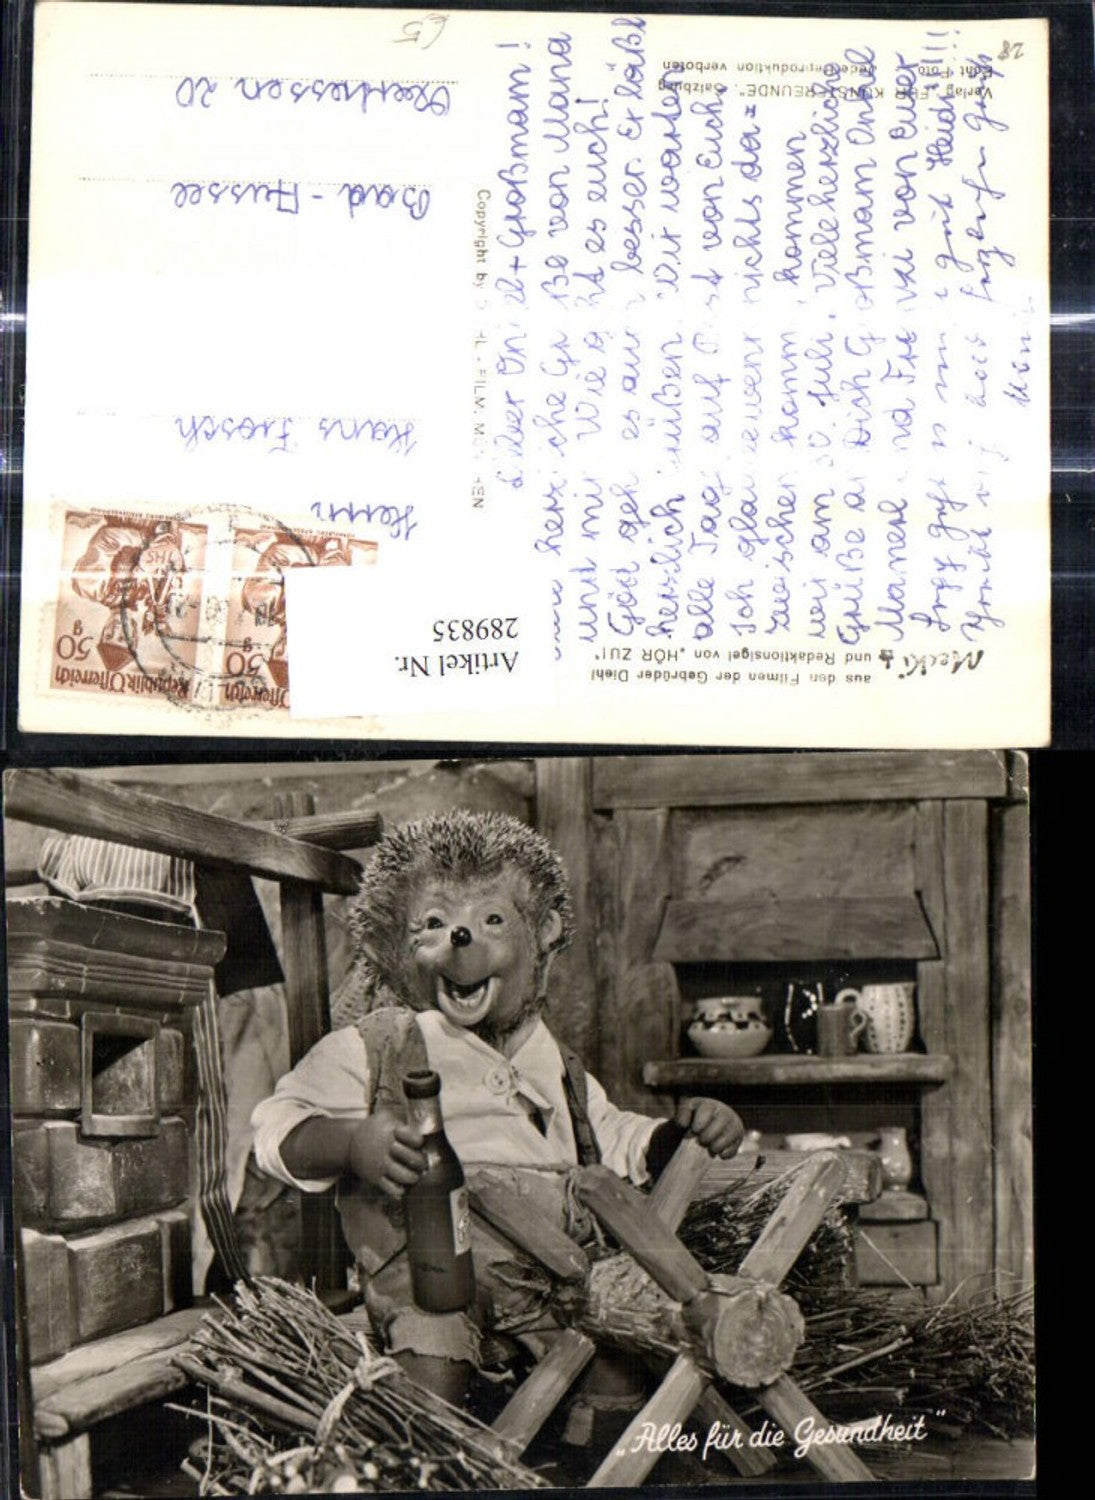 Lieber Onkel + Großmam!
herzliche Grüße von Mama
und mir. Wie geht es euch!
Göd geht es auch besser. Er läßt
herzlich grüßen. Wir warten
alle Tag auf Post von Euch.
Ich glaube wenn nichts da=
zwischen kommt kommen
wir am 30. Juli. Viele herzliche
Grüße an Dich Großmam Onkel
und von Euer
Heidi!!!
Meckі
aus den Filmen der Gebrüder Diehl
und Redaktionsigel von „HÖR ZU!"
Verlag „FÜR KUNSTFREUNDE", Salzburg
Echt Foto Jede Reproduktion verboten
28
Copyright by DIEHL-FILM, MÜNCHEN
Republik Österreich
50 g
Österreich
50 g
Artikel Nr.
289835
Herrn
Hans Frosch
Bad-Aussee
20
£5
„Alles für die Gesundheit"